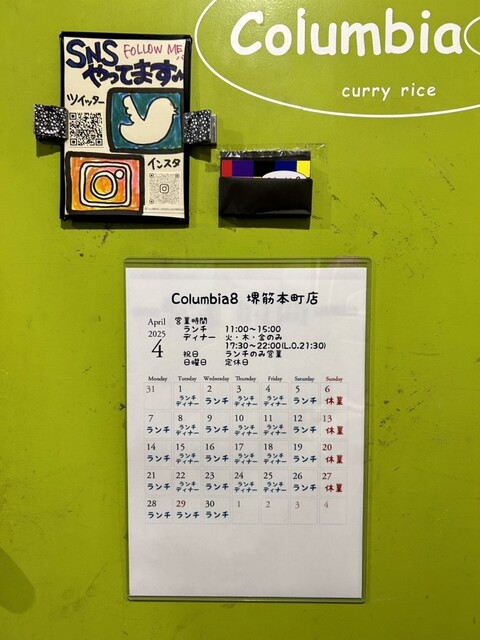 Columbia
curry rice
SNS FOLLOW ME
やってます
ツイッター
インスタ
Columbia8 堺筋本町店
April
2025
4
営業時間
ランチ 11:00～15:00
ディナー 火・木・金のみ
17:30～22:00(L.O.21:30)
祝日 ランチのみ営業
日曜日 定休日
Monday Tuesday Wednesday Thursday Friday Saturday Sunday
31 1 2 3 4 5 6
ランチ ランチ ランチ ランチ ランチ 休業
ディナー ディナー ディナー
7 8 9 10 11 12 13
ランチ ランチ ランチ ランチ ランチ ランチ 休業
ディナー ディナー ディナー
14 15 16 17 18 19 20
ランチ ランチ ランチ ランチ ランチ ランチ 休業
ディナー ディナー ディナー
21 22 23 24 25 26 27
ランチ ランチ ランチ ランチ ランチ ランチ 休業
ディナー ディナー ディナー
28 29 30 1 2 3 4
ランチ ランチ ランチ